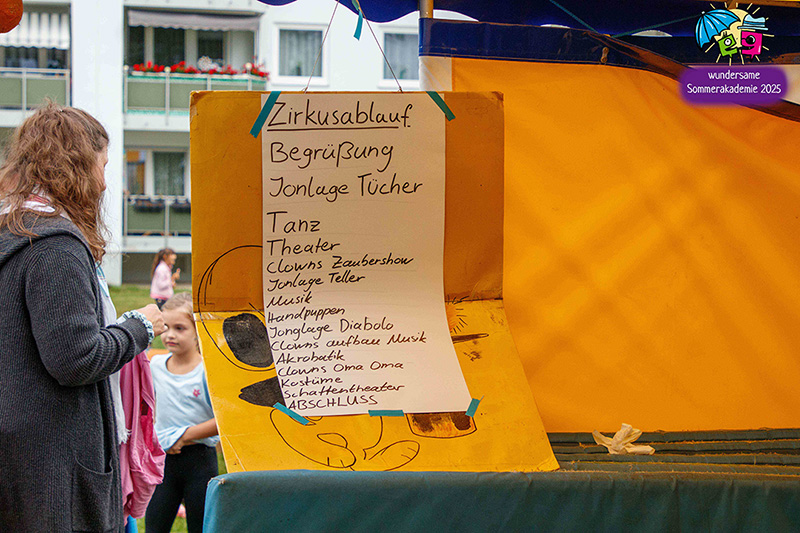 wundersame
Sommerakademie 2025
Zirkusablauf
Begrüßung
Jonlage Tücher
Tanz
Theater
Clowns Zaubershow
Jonlage Teller
Musik
Handpuppen
Jonglage Diabolo
Clowns aufbau Musik
Akrobatik
Clowns Oma Oma
Kostüme
Schattentheater
ABSCHLUSS